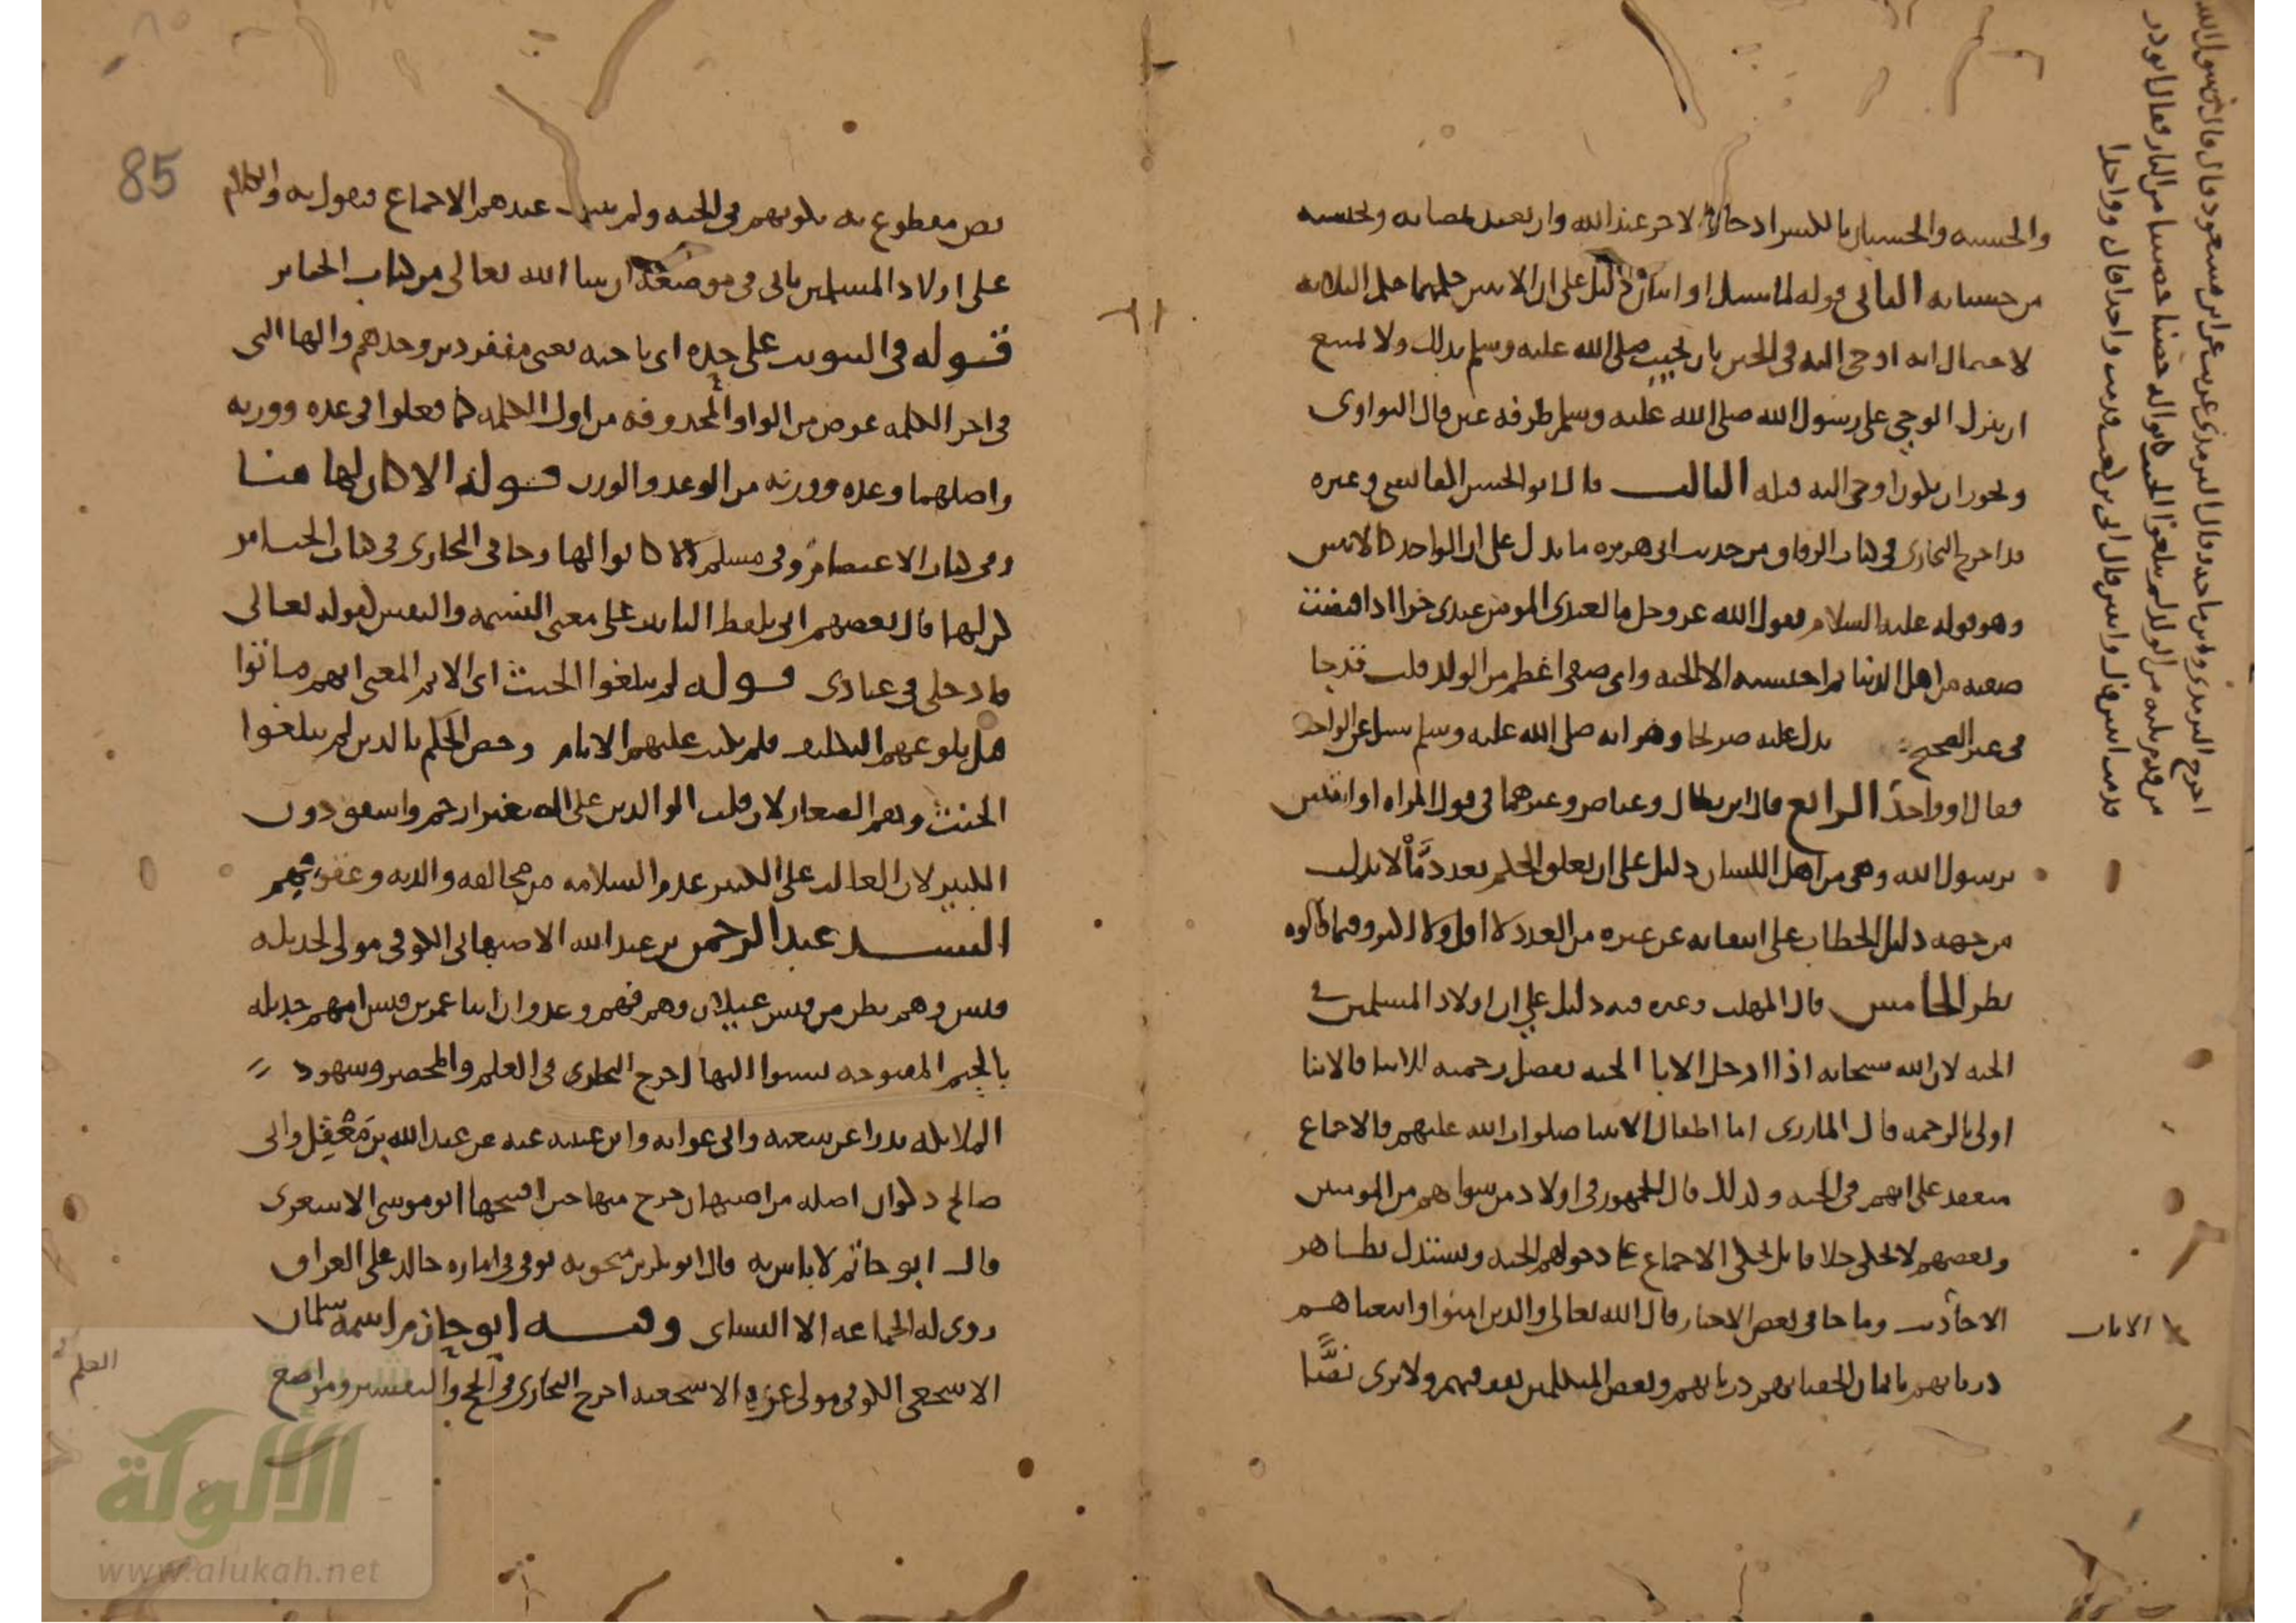 والحسبه والحسبان بالكسر ادخار الاجر عند الله وان يعتد بمصابه ويحتسبه
من حسناته الثاني قوله لما سئل او اثنان دليل على ان الاثنين حكمهما حكم الثلاثه
لاحتمال انه اوحي اليه في الحين بان يجيب صلى الله عليه وسلم بذلك ولا يمتنع
ان ينزل الوحي على رسول الله صلى الله عليه وسلم طرفه عين قال النواوي
ويجوز ان يكون اوحي اليه قبله الثالث قال ابو الحسن القابسي وغيره
قد اخرج البخاري في كتاب الرقاق من حديث ابي هريره ما يدل على ان الواحد كالاثنين
وهو قوله عليه السلام يقول الله عز وجل ما لعبدي المومن عندي جزا اذا قبضت
صفيه من اهل الدنيا ثم احتسبه الا الجنه واي صفي اعظم من الولد قلت قد جا
في غير الصحيح يدل عليه صريحا وهو انه صلى الله عليه وسلم سئل عن الواحد
فقال او واحد الرابع قال ابن بطال وعياض وغيرهما في قول المراه او اثنين
يرسول الله وهي من اهل اللسان دليل على ان تعلق الحكم بعدد ما لا يدل
من جهه دليل الخطاب على انتفايه عن غيره من العدد لا اقل ولا اكثر وفيما قالوه
نظر الخامس قال المهلب وغيره فيه دليل على ان اولاد المسلمين في
الجنه لان الله سبحانه اذا ادخل الابا الجنه بفضل رحمته للابنا فالابنا
اولى بالرحمه قال المازري اما اطفال الانبيا صلوات الله عليهم فالاجماع
منعقد على انهم في الجنه وكذلك قال الجمهور في اولاد من سواهم من المومنين
وبعضهم لا يحكي خلافا بل يحكي الاجماع على دخولهم الجنه ويستدل بظاهر
الاحاديث وما جا في بعض الاخبار قال الله تعالى والذين امنوا واتبعناهم
ذرياتهم بايمان الحقنا بهم ذرياتهم وبعض المتكلمين يقف فيهم ولا يرى نصا
الايات
اخرج الترمذي وابن ماجه وقال الترمذي غريب عن ابن مسعود قال قال رسول الله
من قدم ثلثه من الولد لم يبلغوا الحنث كانوا له حصنا حصينا من النار فقال ابو ذر
قدمت اثنين قال واثنين قال ابي بن كعب قدمت واحدا قال وواحدا
85
نص مقطوع به بكونهم في الجنه ولم يثبت عندهم الاجماع فيقول به والكلام
على اولاد المسلمين ياتي في موضعه ان شا الله تعالى من كتاب الجنايز
قوله في التبويب على حده اي ناحيه يعني منفردين وحدهم والها التي
في اخر الكلمه عوض من الواو المحذوفه من اول الكلمه كما فعلوا في عده وزنه
واصلهما وعده ووزنه من الوعد والوزن قوله الا كان لها هنا
وفي كتاب الاعتصام وفي مسلم الا كانوا لها وجا في البخاري في كتاب الجنايز
كن لها قال بعضهم اتى بلفظ التانيث على معنى النسمه والنفس لقوله تعالى
فادخلي في عبادي قوله لم يبلغوا الحنث اي الاثم المعنى انهم ماتوا
قبل بلوغهم التكليف فلم يكتب عليهم الاثام وخص الحكم بالذين لم يبلغوا
الحنث وهم الصغار لان قلب الوالدين على الصغير ارحم واشفق دون
الكبير لان الغالب على الكبير عدم السلامه من مخالفه والديه وعقوقهم
السند عبد الرحمن بن عبد الله الاصبهاني الكوفي مولى لجديله
قيس وهم بطن من قيس عيلان وهم فهم وعدوان ابنا عمر بن قيس امهم جديله
بالجيم المفتوحه نسبوا اليها اخرج البخاري في العلم والمحصر وشهود
الملايكه بدرا عن شعبه وابي عوانه وابن عيينه عنه عن عبد الله بن معقل وابي
صالح ذكوان اصله من اصبهان خرج منها حين افتتحها ابو موسى الاشعري
قال ابو حاتم لا باس به قال ابو بكر بن منجويه توفي في اماره خالد على العراق
روى له الجماعه الا النساي وفيه ابو حازم اسمه سلمان
الاشجعي الكوفي مولى عزه الاشجعيه اخرج البخاري في الحج والتفسير ومواضع
العلم
الألوكة
www.alukah.net